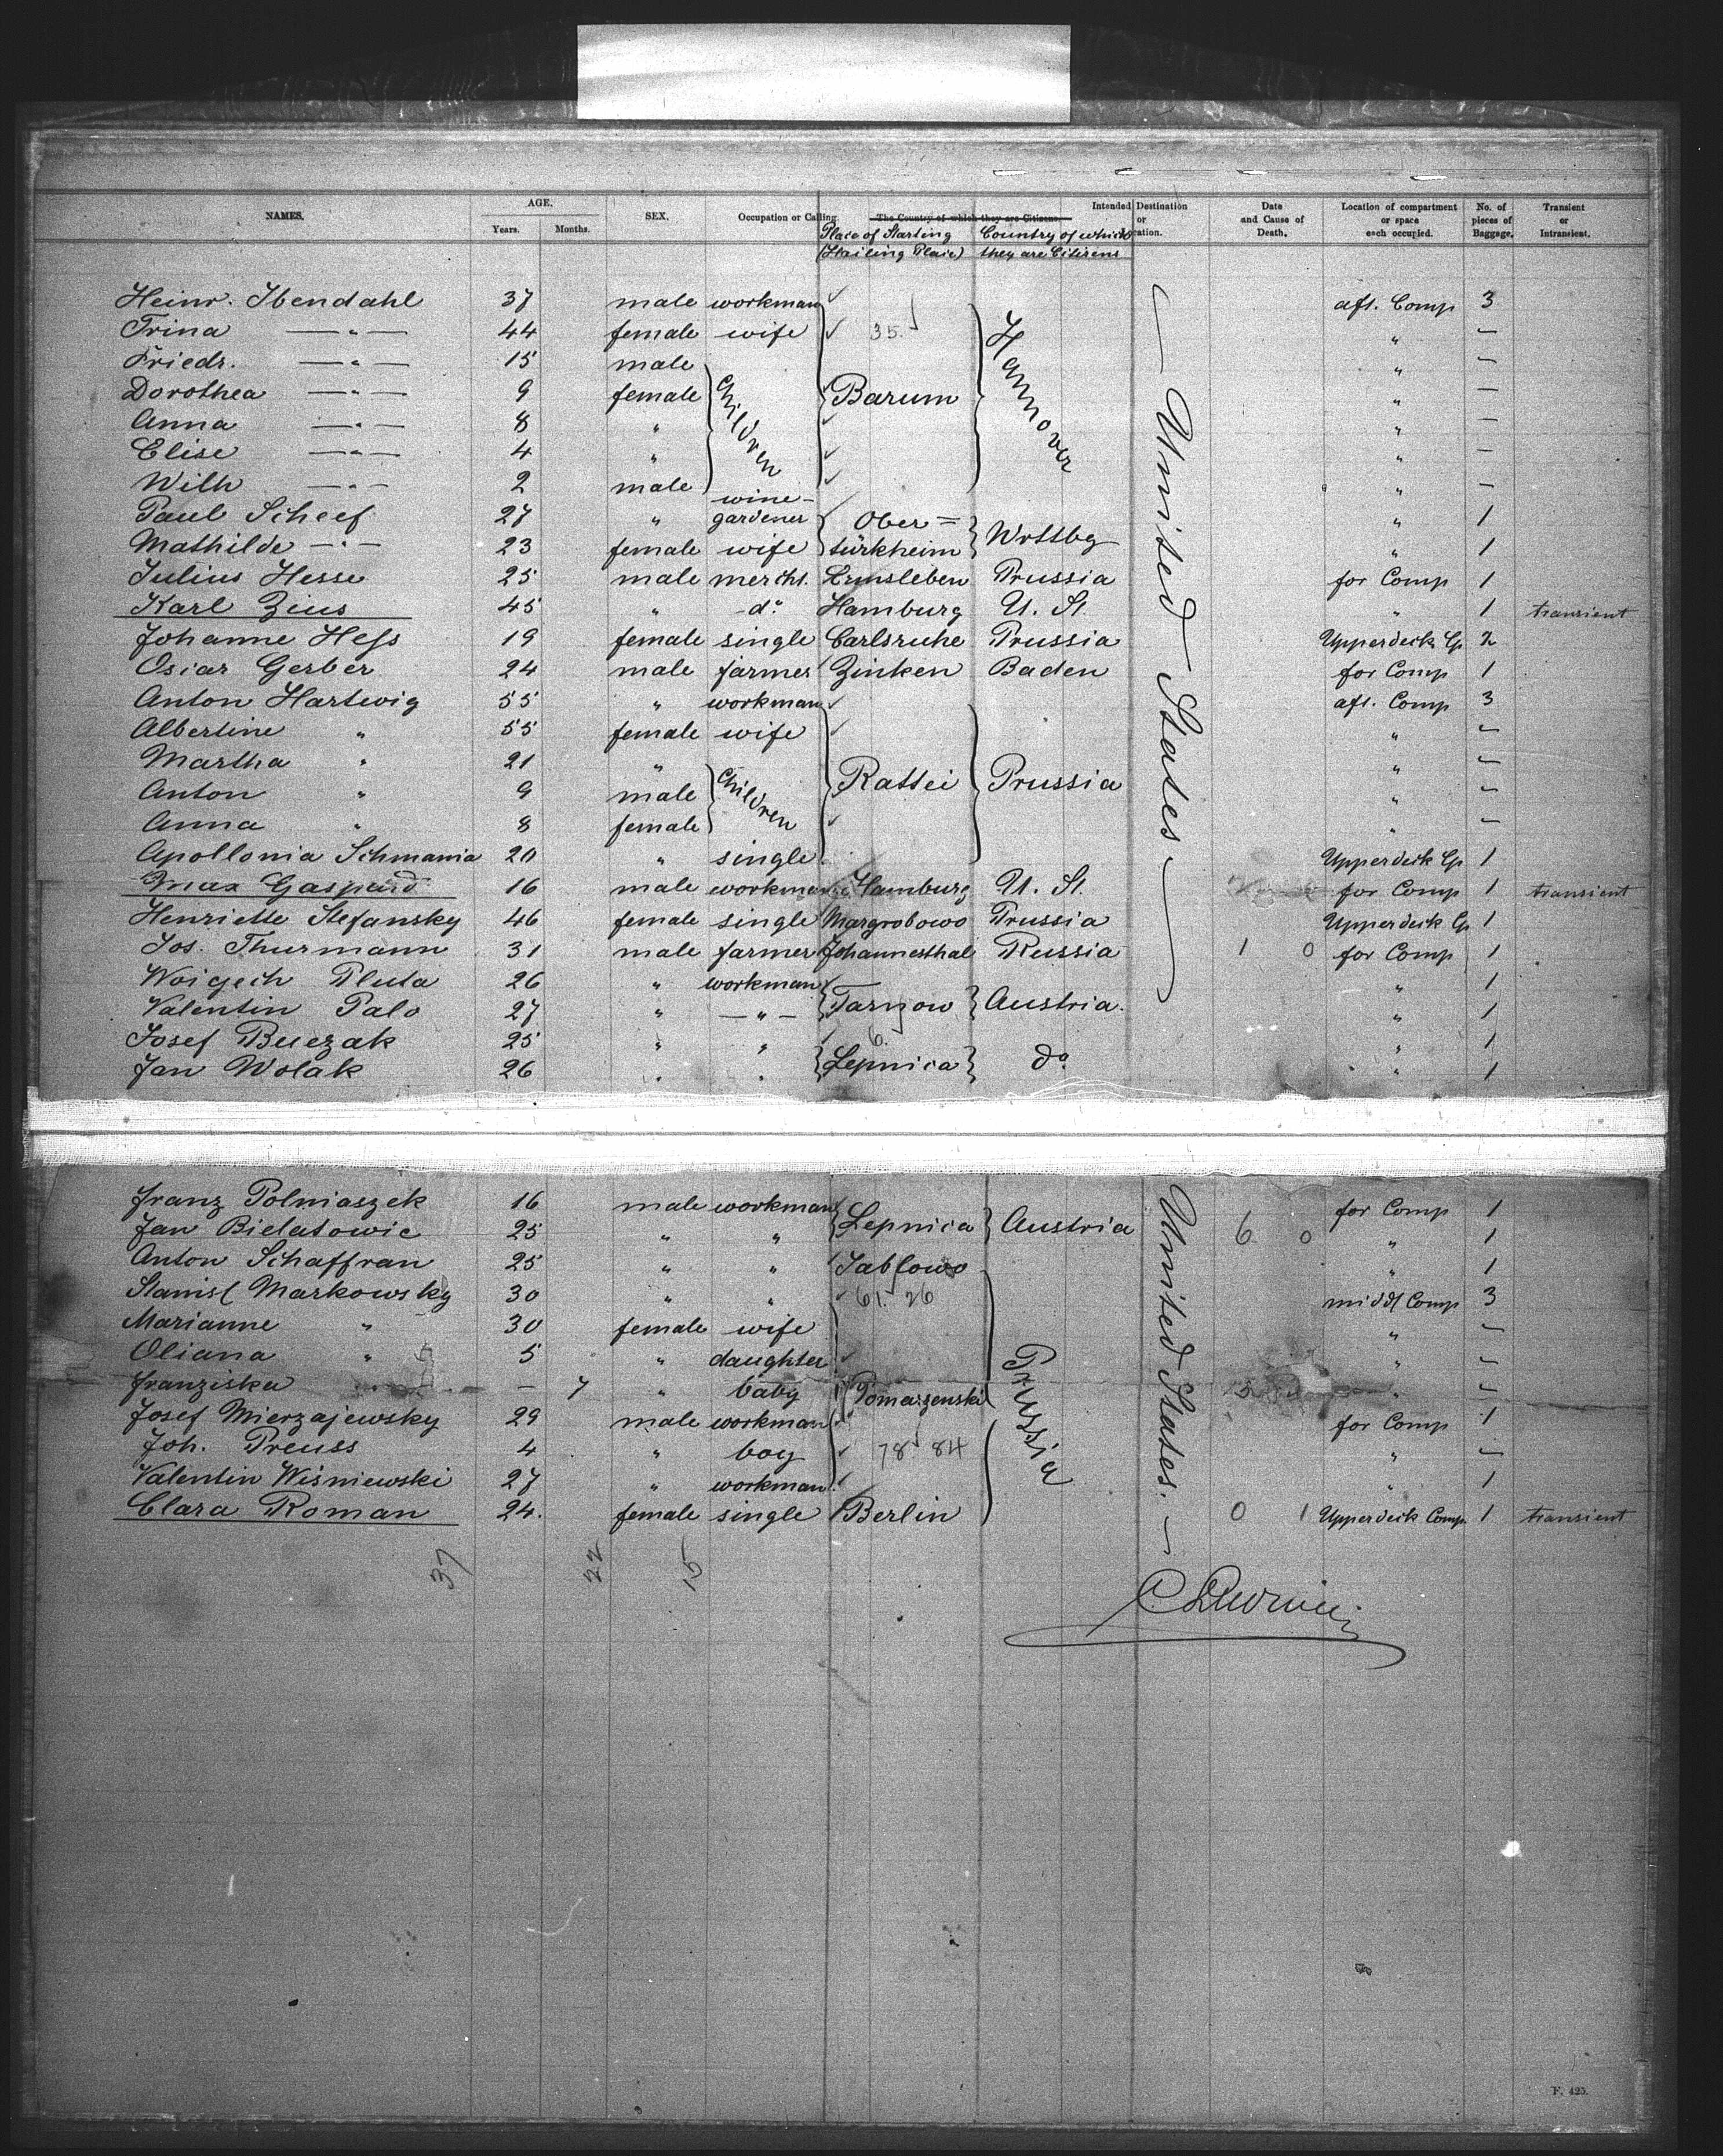 NAMES. AGE. Years. Months. SEX. Occupation or Calling. The Country of which they are Citizens. Intended Destination or Location. Date and Cause of Death. Location of compartment or space each occupied. No. of pieces of Baggage. Transient or Intransient.
Place of Starting Country of which
they are Citizens
Heinr. Ibendahl 37 male workman aft. Comp 3
Trina —"— 44 female wife 35. " —
Friedr. —"— 15 male " —
Dorothea —"— 9 female Children Barum Hannover " —
Anna —"— 8 " " —
Elise —"— 4 " " —
Wilh —"— 2 male " —
Paul Scheef 27 " wine-gardener Ober= " 1
Mathilde —"— 23 female wife türkheim Wrttbg " 1
Julius Hesse 25 male mercht. Ermsleben Prussia for Comp 1
Karl Zius 45 " do Hamburg U. St. " 1 transient
Johanne Heſs 19 female single Carlsruhe Prussia Upperdeck Cp 2
Oscar Gerber 24 male farmer Zinken Baden for Comp 1
Anton Hartwig 55 " workman aft. Comp 3
Albertine " 55 female wife " —
Martha " 21 " " —
Anton " 9 male Children Rattei Prussia " —
Anna " 8 female " —
Apollonia Schmania 20 " single Upperdeck Cp 1
Max Gaspard 16 male workman Hamburg U. St. for Comp 1 transient
Henriette Stefansky 46 female single Margrobowo Prussia Upperdeck Cp 1
Jos. Thurmann 31 male farmer Johannesthal Russia 1 0 for Comp 1
Woigech Pluta 26 " workman " 1
Valentin Palo 27 " —"— Tarnow Austria. " 1
Josef Buczak 25 " " 6. " 1
Jan Wolak 26 " " Lepnica do " 1
— United States —
Franz Polniaszek 16 male workman for Comp 1
Jan Bielatowic 25 " " Lepnica Austria 6 0 " 1
Anton Schaffran 25 " " Jablowo " 1
Stanisl Markowsky 30 " " 61. 26 middl Comp 3
Marianne " 30 female wife " —
Oliana " 5 " daughter " —
Franziska " — 7 " baby Pomarzenski Prussia " —
Josef Mierzajewsky 29 male workman for Comp 1
Joh. Preuss 4 " boy 78 84 " —
Valentin Wiśniewski 27 " workman " 1
Clara Roman 24. female single Berlin 0 1 Upperdeck Comp. 1 transient
United States. —
37 22 15
F. 425.